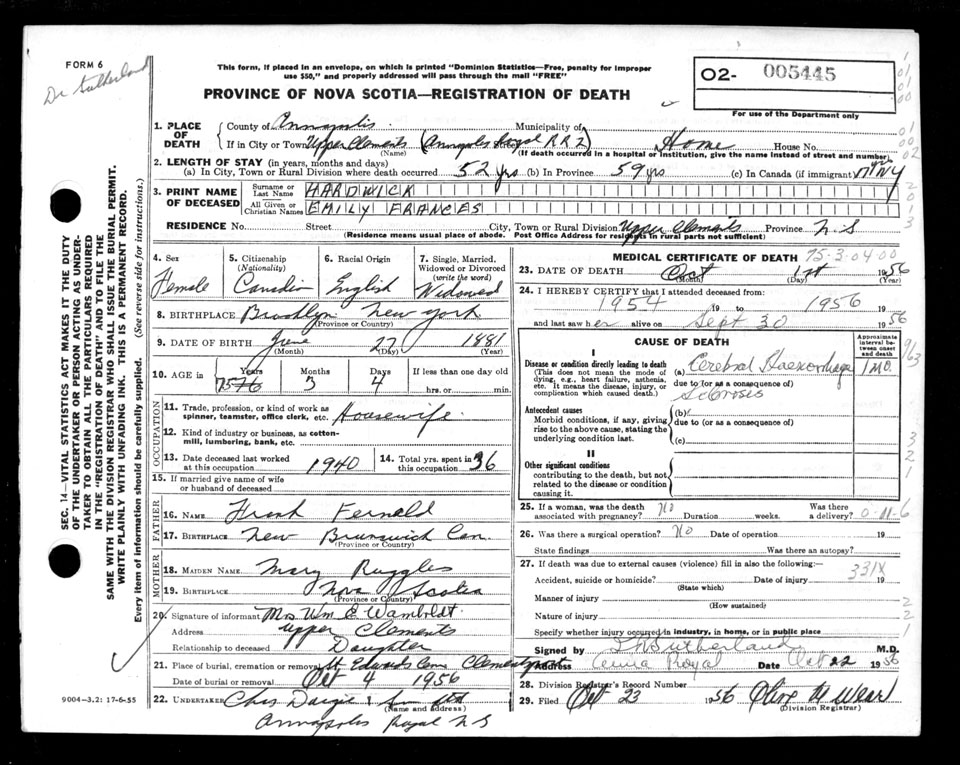 FORM 6
Dr Sutherland
This form, if placed in an envelope, on which is printed "Dominion Statistics—Free, penalty for improper
use $50," and properly addressed will pass through the mail "FREE"
PROVINCE OF NOVA SCOTIA—REGISTRATION OF DEATH
02- 005445
For use of the Department only
SEC. 14—VITAL STATISTICS ACT MAKES IT THE DUTY
OF THE UNDERTAKER OR PERSON ACTING AS UNDER-
TAKER TO OBTAIN ALL THE PARTICULARS REQUIRED
IN THE "REGISTRATION OF DEATH" AND TO FILE THE
SAME WITH THE DIVISION REGISTRAR WHO SHALL ISSUE THE BURIAL PERMIT.
WRITE PLAINLY WITH UNFADING INK. THIS IS A PERMANENT RECORD.
Every item of information should be carefully supplied. (See reverse side for instructions.)
1. PLACE OF DEATH
County of Annapolis Municipality of
If in City or Town Upper Clements (Annapolis Royal RR2) Home House No.
(Name) (If death occurred in a hospital or institution, give the name instead of street and number)
2. LENGTH OF STAY (in years, months and days)
(a) In City, Town or Rural Division where death occurred 52 yrs (b) In Province 59 yrs (c) In Canada (if immigrant)
3. PRINT NAME OF DECEASED
Surname or Last Name HARDWICK
All Given or Christian Names EMILY FRANCES
RESIDENCE No. Street City, Town or Rural Division Upper Clements Province N.S
(Residence means usual place of abode. Post Office Address for residents in rural parts not sufficient)
4. Sex Female
5. Citizenship (Nationality) Canadian
6. Racial Origin English
7. Single, Married, Widowed or Divorced (write the word) Widowed
8. BIRTHPLACE Brooklyn New York
(Province or Country)
9. DATE OF BIRTH June 27 1881
(Month) (Day) (Year)
10. AGE in Years 75 76 Months 3 Days 4 If less than one day old
hrs. or min.
OCCUPATION
11. Trade, profession, or kind of work as
spinner, teamster, office clerk, etc. Housewife
12. Kind of industry or business, as cotton-
mill, lumbering, bank, etc.
13. Date deceased last worked at this occupation 1940
14. Total yrs. spent in this occupation 36
15. If married give name of wife or husband of deceased
FATHER
16. NAME Frank Fernald
17. BIRTHPLACE New Brunswick Can.
(Province or Country)
MOTHER
18. MAIDEN NAME Mary Ruggles
19. BIRTHPLACE Nova Scotia
(Province or Country)
20. Signature of informant Mrs Wm E Wamboldt.
Address Upper Clements
Relationship to deceased Daughter
21. Place of burial, cremation or removal St Edwards Cem Clementsport
Date of burial or removal Oct 4 1956
9004-3.2: 17-6-55
22. UNDERTAKER Chas Dargie & Son
(Name and address)
Annapolis Royal N S
MEDICAL CERTIFICATE OF DEATH 75-3-04-00
23. DATE OF DEATH Oct 1st 1956
(Month) (Day) (Year)
24. I HEREBY CERTIFY that I attended deceased from:
1954 19 to 1956 19
and last saw her alive on Sept 30 1956
CAUSE OF DEATH
Approximate interval between onset and death
I
Disease or condition directly leading to death
(This does not mean the mode of
dying, e.g., heart failure, asthenia,
etc. It means the disease, injury, or
complication which caused death.)
(a) Cerebral Haemorrhage 1 mo.
due to (or as a consequence of)
Antecedent causes
Morbid conditions, if any, giving
rise to the above cause, stating the
underlying condition last.
(b)
due to (or as a consequence of)
(c)
II
Other significant conditions
contributing to the death, but not
related to the disease or condition
causing it.
25. If a woman, was the death associated with pregnancy? No Duration weeks. Was there a delivery? 0-11-6
26. Was there a surgical operation? No Date of operation 19
State findings Was there an autopsy?
27. If death was due to external causes (violence) fill in also the following:
331X
Accident, suicide or homicide? Date of injury 19
(State which)
Manner of injury
(How sustained)
Nature of injury
Specify whether injury occurred in industry, in home, or in public place
Signed by Sutherland M.D.
Address Anna Royal Date Oct 22 1956
28. Division Registrar's Record Number
29. Filed Oct 23 1956 Olive M Wear
(Division Registrar)